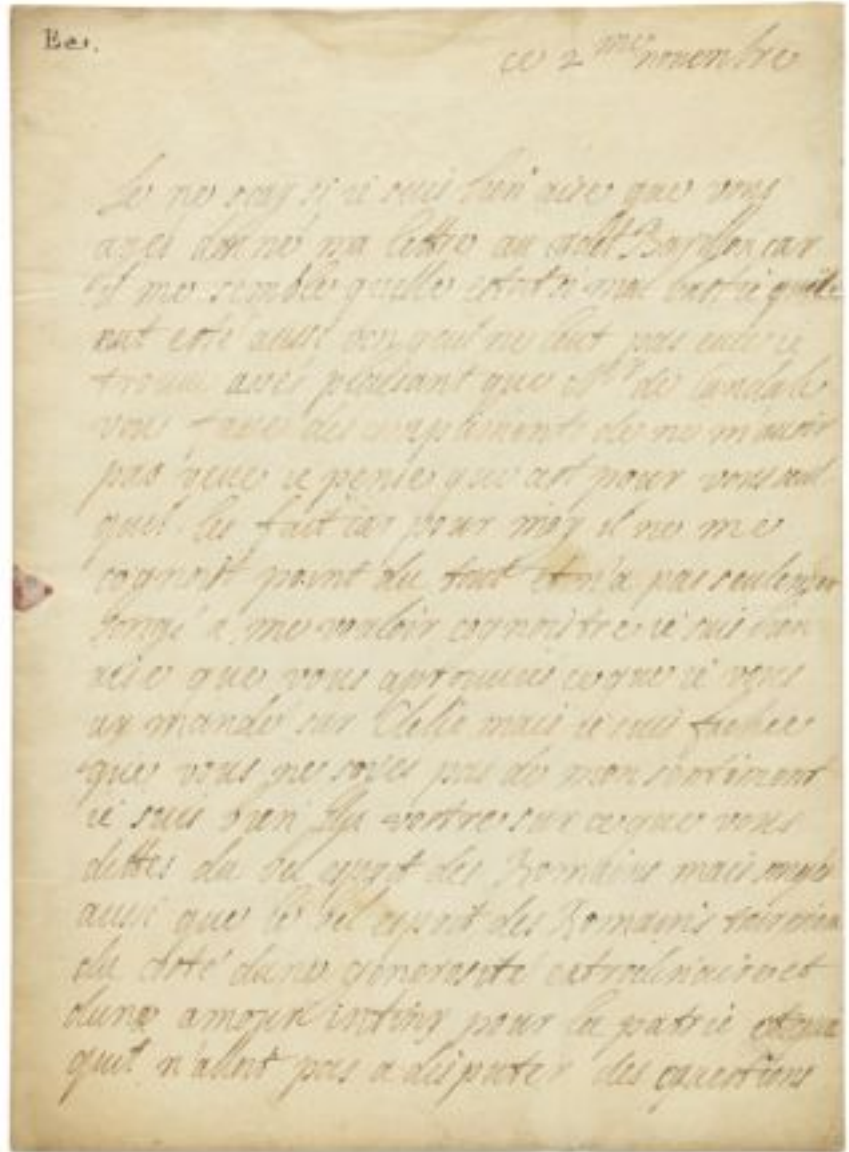 Ee.
ce 2 me nouembre
Je ne scay si ie suis bien aise que vous
aues donné ma lettre au car
il me semble quelle estoit si mal
eut esté aussi bon quil ne leut pas eue ie
trouue asés plaisant que Mr de Candale
vous fasse des compliments de ne mauoir
pas veue ie pense que cest pour vous seul
quil les fait car pour moy il ne me
cognoist point du tout et n'a pas seulement
songé a me vouloir cognoistre ie suis bien
aise que vous aprouuies ce que ie vous
ay mandé sur Clelie mais ie suis fachee
que vous ne soies pas de mon sentiment
ie suis bien du vostre sur ce que vous
dittes du bel esprit des Romains mais
aussi que le bel esprit des Romains
du coté dune generosité extrordinaire et
dune amour intime pour la patrie
quil n'alloit pas a disputer des questions